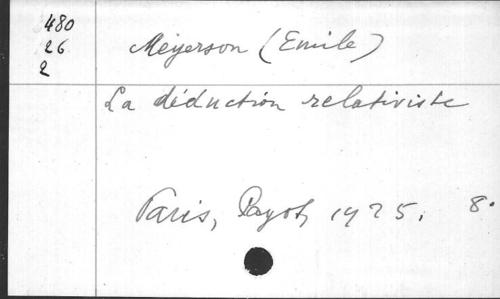 480
26
2
Meyerson (Emile)
La déduction relativiste
Paris, Payot, 1925. 8.